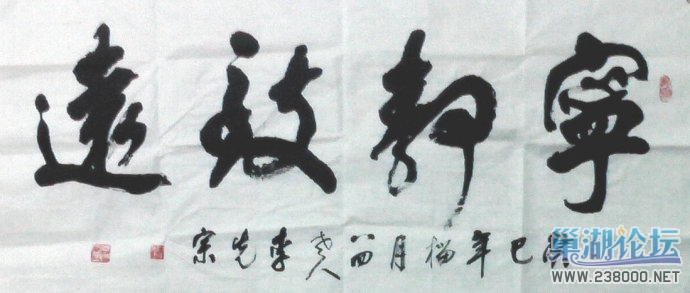 寧靜致遠
巳年榴月 李先宗
巢湖论坛
WWW.238000.NET